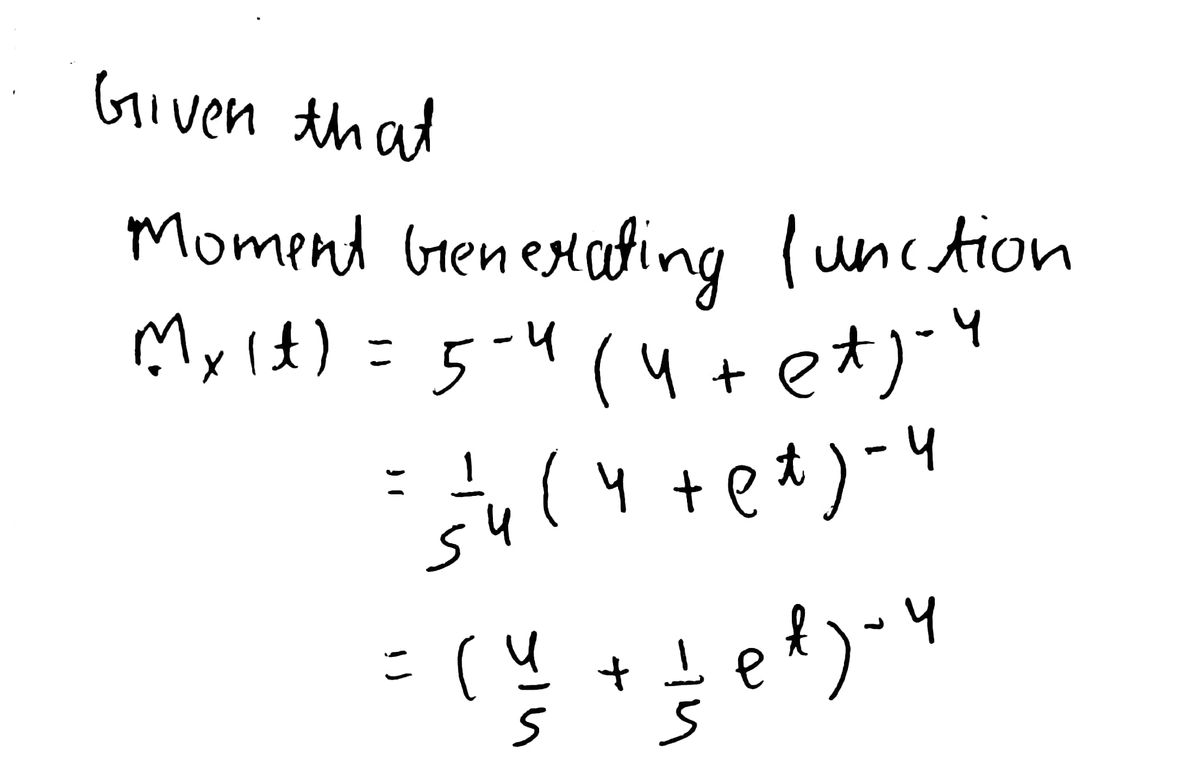 Given that
Moment Generating function
Mx(t) = 5^-4 (4 + e^t)^-4
= 1/5^4 (4 + e^t)^-4
= (4/5 + 1/5 e^t)^-4